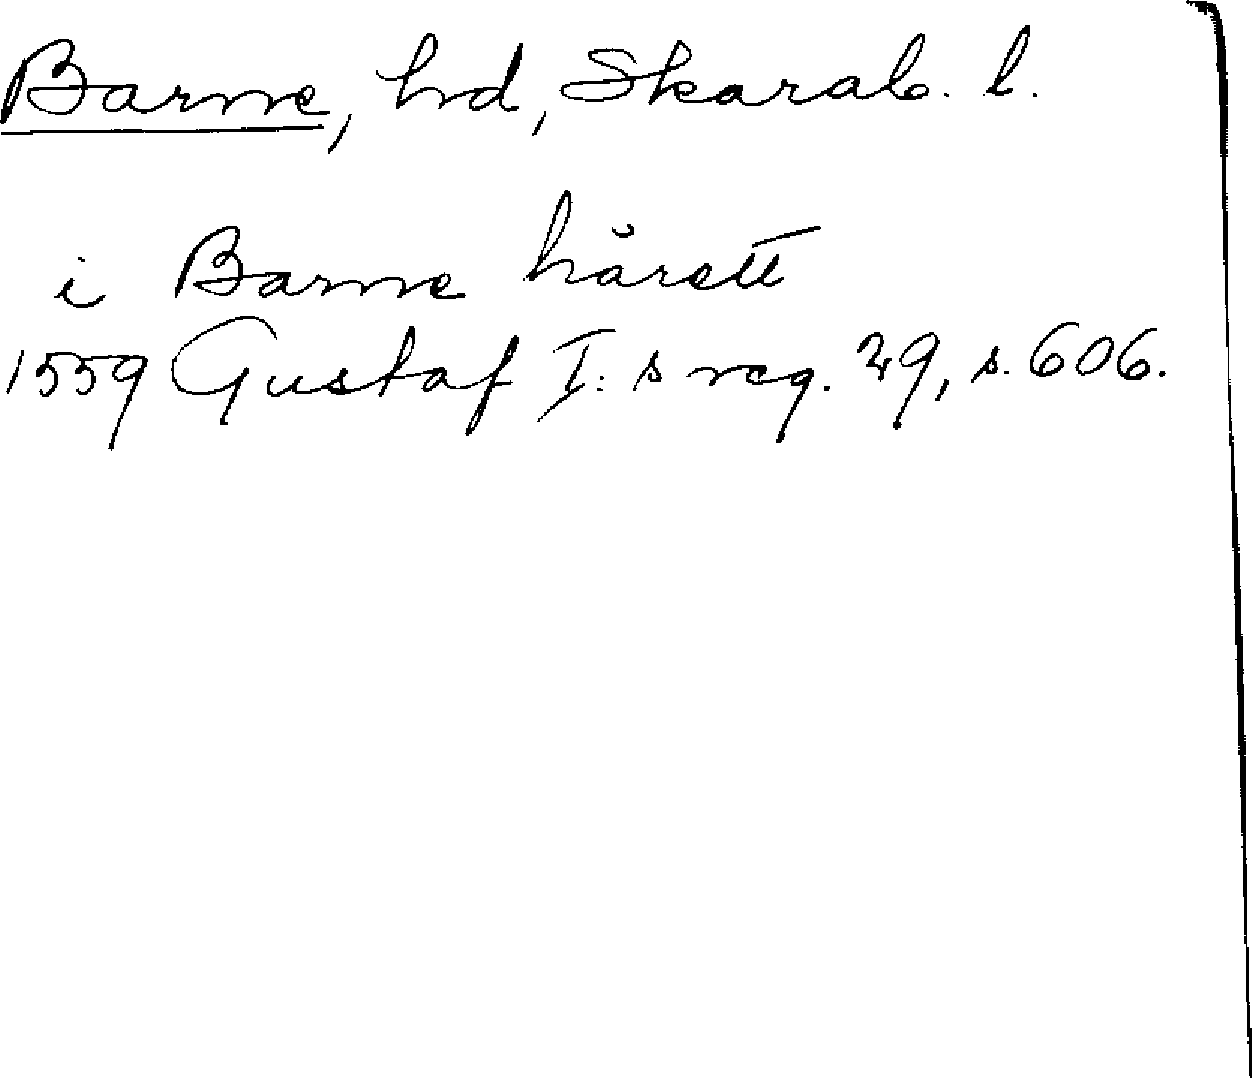 Barne, hd, Skarab. l.
i Barne hårett
1559 Gustaf I:s reg. 29, s. 606.